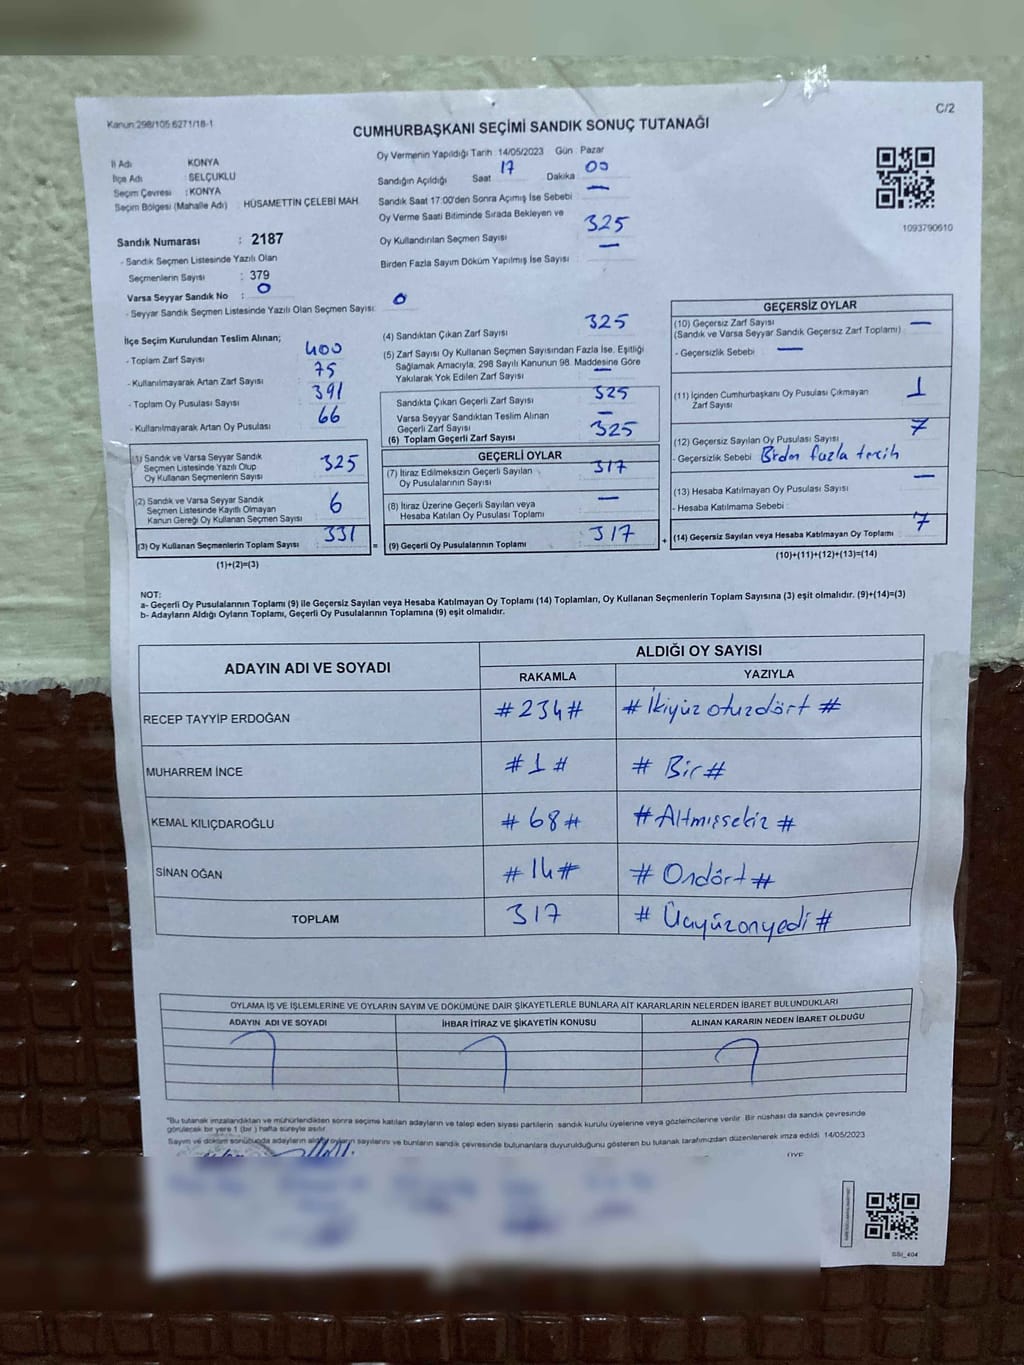 Kanun:298/105 6271/18-1
C/2
CUMHURBAŞKANI SEÇİMİ SANDIK SONUÇ TUTANAĞI
İl Adı : KONYA
İlçe Adı : SELÇUKLU
Seçim Çevresi : KONYA
Seçim Bölgesi (Mahalle Adı) : HÜSAMETTİN ÇELEBİ MAH.
Sandık Numarası : 2187
- Sandık Seçmen Listesinde Yazılı Olan
Seçmenlerin Sayısı : 379
Varsa Seyyar Sandık No : 0
- Seyyar Sandık Seçmen Listesinde Yazılı Olan Seçmen Sayısı: 0
Oy Vermenin Yapıldığı Tarih :14/05/2023 Gün : Pazar
Sandığın Açıldığı Saat 17 Dakika 00
Sandık Saat 17:00'den Sonra Açımış İse Sebebi : —
Oy Verme Saati Bitiminde Sırada Bekleyen ve
Oy Kullandırılan Seçmen Sayısı : 325
Birden Fazla Sayım Döküm Yapılmış İse Sayısı : —
1093790610
İlçe Seçim Kurulundan Teslim Alınan;
- Toplam Zarf Sayısı : 400
- Kullanılmayarak Artan Zarf Sayısı : 75
- Toplam Oy Pusulası Sayısı : 391
- Kullanılmayarak Artan Oy Pusulası : 66
(1) Sandık ve Varsa Seyyar Sandık
Seçmen Listesinde Yazılı Olup
Oy Kullanan Seçmenlerin Sayısı : 325
(2) Sandık ve Varsa Seyyar Sandık
Seçmen Listesinde Kayıtlı Olmayan
Kanun Gereği Oy Kullanan Seçmen Sayısı : 6
(3) Oy Kullanan Seçmenlerin Toplam Sayısı : 331
(1)+(2)=(3)
(4) Sandıktan Çıkan Zarf Sayısı : 325
(5) Zarf Sayısı Oy Kullanan Seçmen Sayısından Fazla İse, Eşitliği
Sağlamak Amacıyla, 298 Sayılı Kanunun 98. Maddesine Göre
Yakılarak Yok Edilen Zarf Sayısı : —
Sandıkta Çıkan Geçerli Zarf Sayısı : 325
Varsa Seyyar Sandıktan Teslim Alınan
Geçerli Zarf Sayısı : —
(6) Toplam Geçerli Zarf Sayısı : 325
GEÇERLİ OYLAR
(7) İtiraz Edilmeksizin Geçerli Sayılan
Oy Pusulalarının Sayısı : 317
(8) İtiraz Üzerine Geçerli Sayılan veya
Hesaba Katılan Oy Pusulası Toplamı : —
= (9) Geçerli Oy Pusulalarının Toplamı : 317
GEÇERSİZ OYLAR
(10) Geçersiz Zarf Sayısı : —
(Sandık ve Varsa Seyyar Sandık Geçersiz Zarf Toplamı)
- Geçersizlik Sebebi : —
(11) İçinden Cumhurbaşkanı Oy Pusulası Çıkmayan
Zarf Sayısı : 1
(12) Geçersiz Sayılan Oy Pusulası Sayısı : 7
- Geçersizlik Sebebi Birden fazla tercih
(13) Hesaba Katılmayan Oy Pusulası Sayısı : —
- Hesaba Katılmama Sebebi :
+ (14) Geçersiz Sayılan veya Hesaba Katılmayan Oy Toplamı : 7
(10)+(11)+(12)+(13)=(14)
NOT:
a- Geçerli Oy Pusulalarının Toplamı (9) ile Geçersiz Sayılan veya Hesaba Katılmayan Oy Toplamı (14) Toplamları, Oy Kullanan Seçmenlerin Toplam Sayısına (3) eşit olmalıdır. (9)+(14)=(3)
b- Adayların Aldığı Oyların Toplamı, Geçerli Oy Pusulalarının Toplamına (9) eşit olmalıdır.
ADAYIN ADI VE SOYADI
ALDIĞI OY SAYISI
RAKAMLA YAZIYLA
RECEP TAYYİP ERDOĞAN #234# #İkiyüz otuzdört #
MUHARREM İNCE #1# # Bir#
KEMAL KILIÇDAROĞLU #68# #Altmışsekiz #
SİNAN OĞAN #14# # Ondört #
TOPLAM 317 # Üçyüzonyedi #
OYLAMA İŞ VE İŞLEMLERİNE VE OYLARIN SAYIM VE DÖKÜMÜNE DAİR ŞİKAYETLERLE BUNLARA AİT KARARLARIN NELERDEN İBARET BULUNDUKLARI
ADAYIN ADI VE SOYADI İHBAR İTİRAZ VE ŞİKAYETİN KONUSU ALINAN KARARIN NEDEN İBARET OLDUĞU
*Bu tutanak imzalandıktan ve mühürlendikten sonra seçime katılan adayların ve talep eden siyasi partilerin sandık kurulu üyelerine veya gözlemcilerine verilir. Bir nüshası da sandık çevresinde
görülecek bir yere 1 (bir) hafta süreyle asılır.
Sayım ve döküm sonucunda adayların aldığı oyların sayılarını ve bunların sandık çevresinde bulunanlara duyurulduğunu gösteren bu tutanak tarafımızdan düzenlenerek imza edildi. 14/05/2023
ÜYE
SSI_404